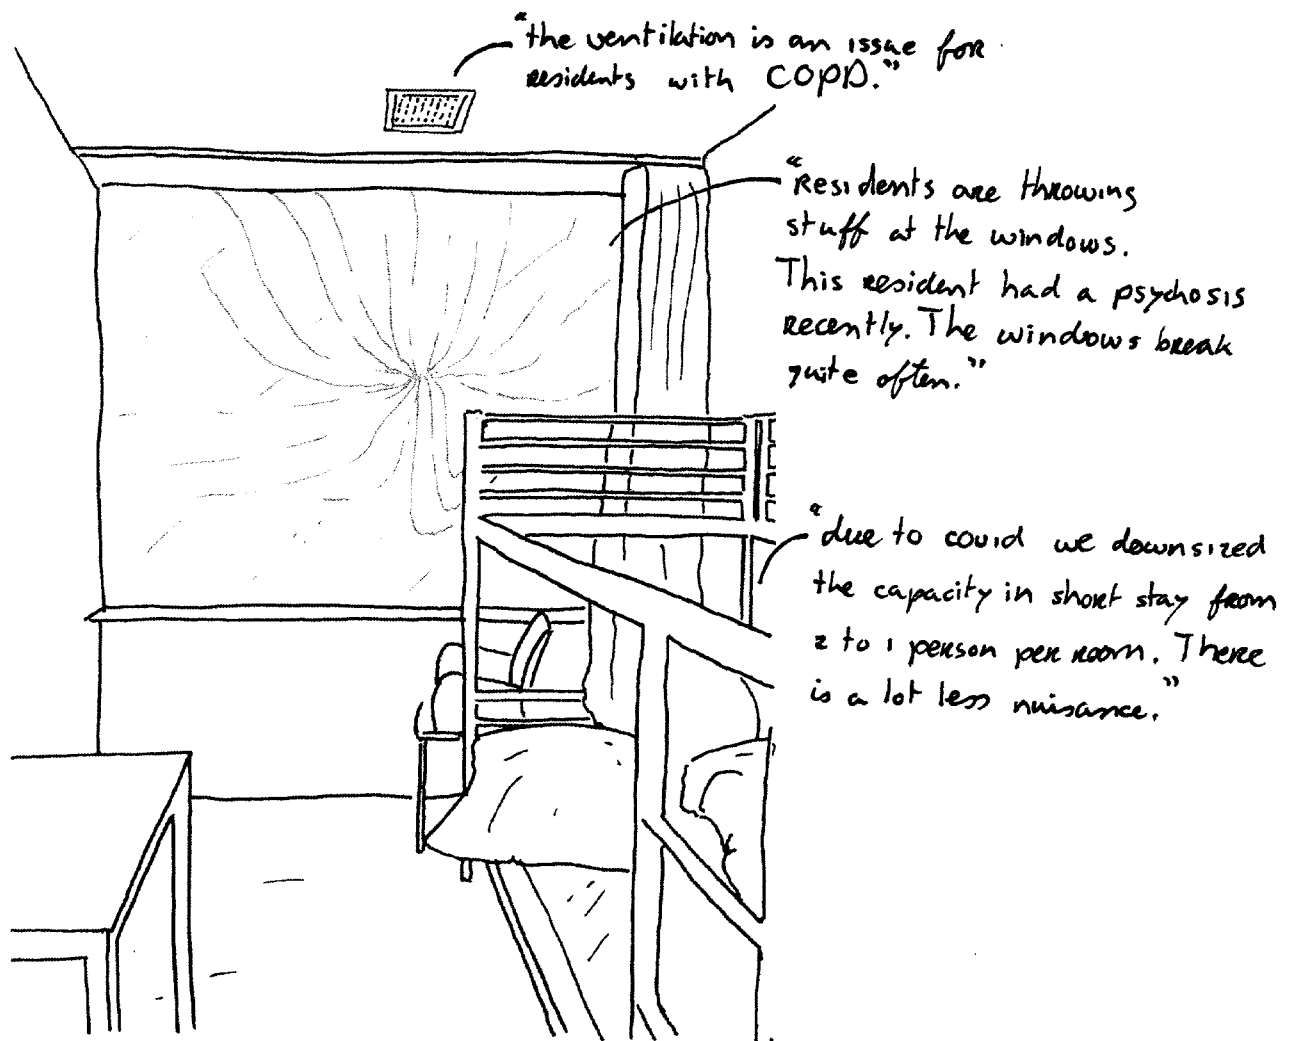 "the ventilation is an issue for
residents with COPD."
"Residents are throwing
stuff at the windows.
This resident had a psychosis
recently. The windows break
quite often."
"due to covid we downsized
the capacity in short stay from
2 to 1 person per room. There
is a lot less nuisance."